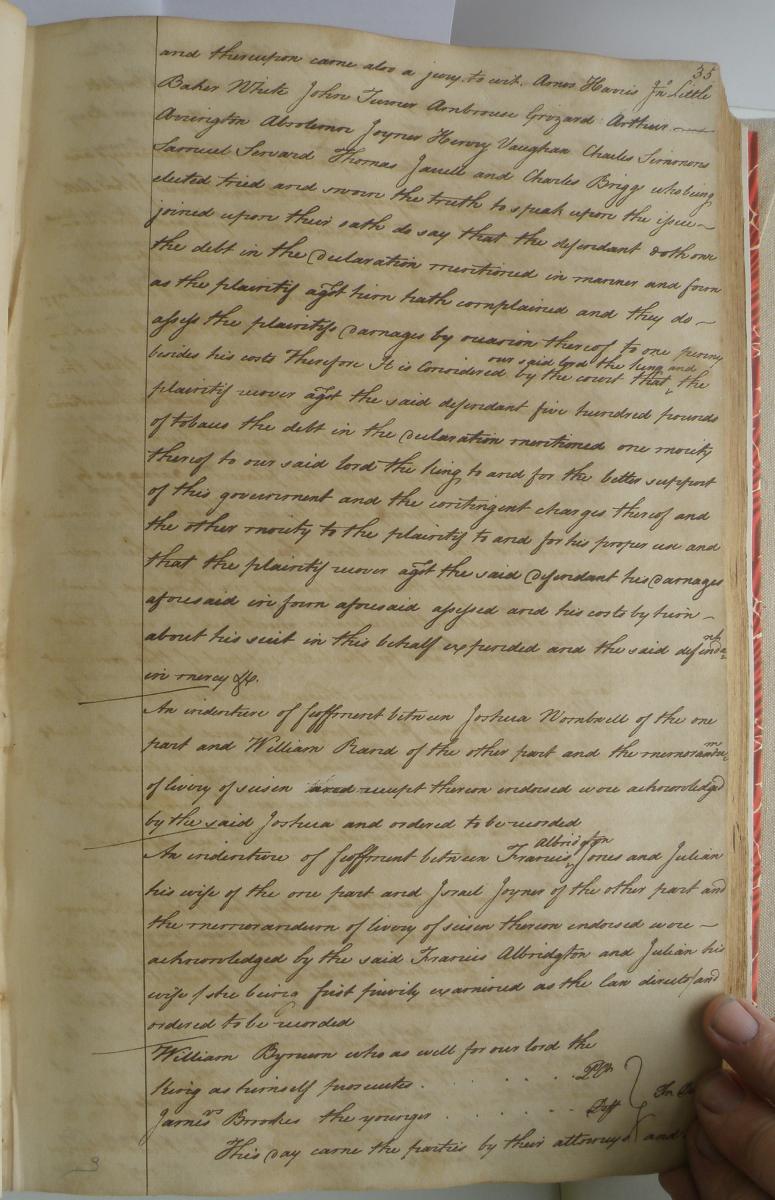 35
and thereupon came also a jury to wit. Amos Harris Jno Little
Baker White John Turner Ambrouse Grizard Arthur
Arrington Absolemon Joyner Henry Vaughan Charles Simmons
Samuel Servard Thomas Jarrell and Charles Briggs who being
elected tried and sworn the truth to speak upon the issue
joined upon their oath do say that the defendant doth owe
the debt in the Declaration mentioned in manner and form
as the plaintif agst him hath complained and they do
assess the plaintifs Damages by occasion thereof to one penny
our said lord the king and
besides his costs Therefore It is Considered by the court that ^ the
plaintif recover agst the said defendant five hundred pounds
of tobacco the debt in the Declaration mentioned one moiety
thereof to our said lord the king to and for the better support
of this government and the contingent charges thereof and
the other moiety to the plaintif to and for his proper use and
that the plaintif recover agst the said Defendant his Damages
aforesaid in form aforesaid assessed and his costs by him
about his suit in this behalf expended and the said defendant
in mercy &c.
An indenture of feoffment between Joshua Wombwell of the one
part and William Rand of the other part and the memorandum
of livery of seisen receipt thereon endorsed were acknowledged
by the said Joshua and ordered to be recorded
Albridgton
An indenture of feoffment between Francis ^ Jones and Julian
his wife of the one part and Israel Joyner of the other part and
the memorandum of livery of seisen thereon endorsed were
acknowledged by the said Francis Albridgton and Julian his
wife /she being first privily examined as the law directs/ and
ordered to be recorded
William Bynum who as well for our lord the
king as himself prosecutes . . . . . . Plt
In
vs
James Brookes the younger . . . . . . Deft
This day came the parties by their attorneys and
3